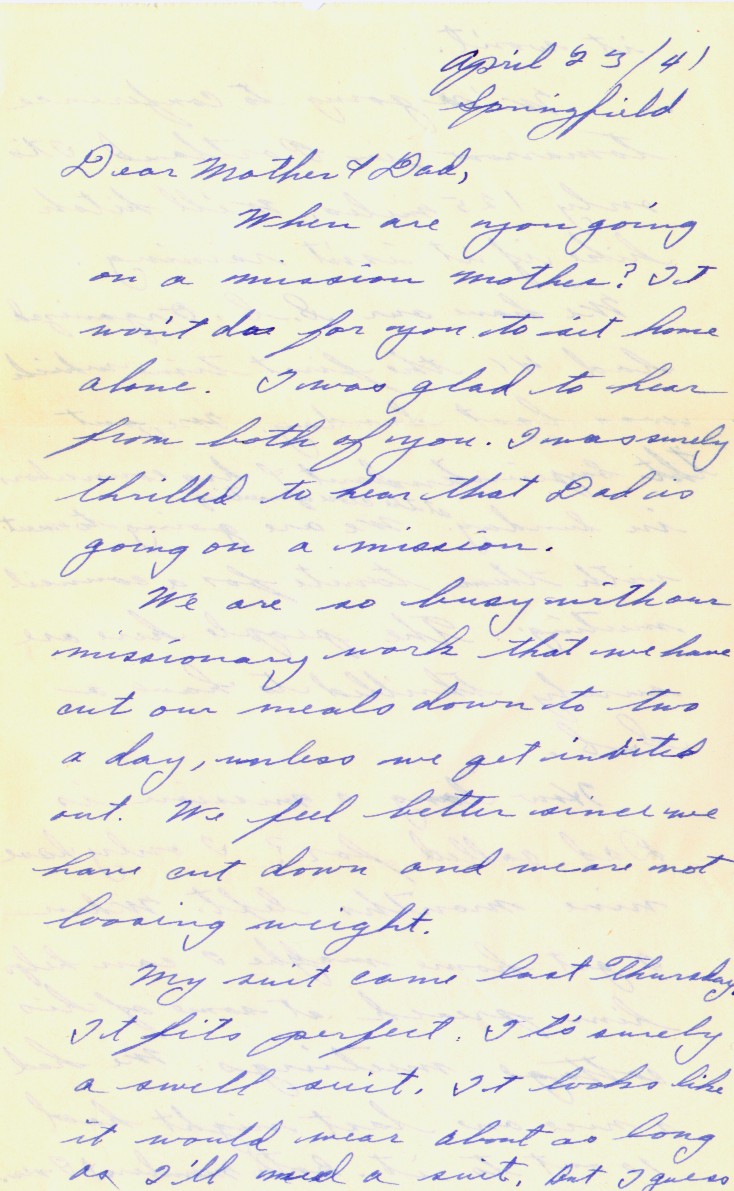 April 23/41
Springfield
Dear Mother & Dad,
When are you going
on a mission Mother? It
won't do for you to sit home
alone. I was glad to hear
from both of you. I was surely
thrilled to hear that Dad is
going on a mission.
We are so busy with our
missionary work that we have
cut our meals down to two
a day, unless we get invited
out. We feel better since we
have cut down and we are not
loosing weight.
My suit came last Thursday.
It fits perfect. It's surely
a swell suit. It looks like
it would wear about as long
as I'll need a suit. But I guess